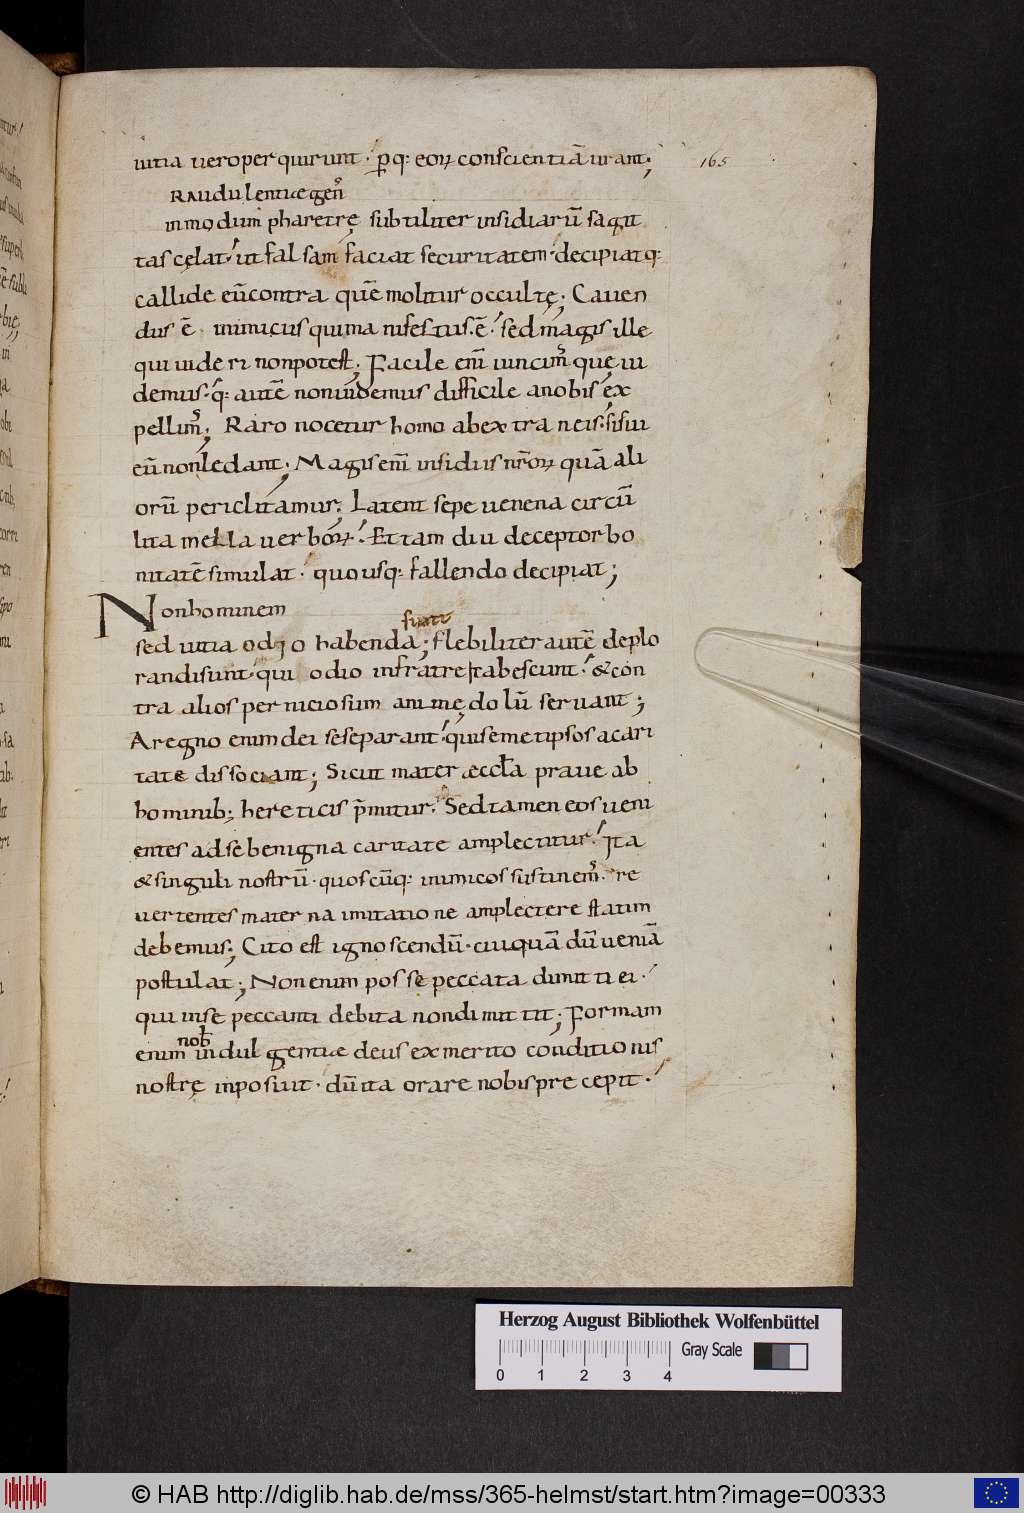 uitia uero per quirunt · ꝑ q: eoꝝ conscientiā iurant;
165
RAudulentiae gen̄
in modum pharetrę subtiliter insidiarū sagit
tas cęlat · ut falsam faciat securitatem · decipiat q:
callide eū contra quē molitur occultę; Cauen
dus ē inimicus qui manifestus · ē · sed magis ille
qui uideri non potest; Facile eni᷒ uincim᷒ quę ui
demus · q: autē non uidemus difficile a nobis ex
pellim᷒; Raro nocetur homo ab extraneis · si sui
eū non ledant; Magis eni᷒ insidiis nr̄oꝝ quā ali
orū periclitamur; Latent sepe uenena circū
lita mella uerboꝝ · Et tam diu deceptor bo
nitatē simulat · quousq: fallendo decipiat;
Non hominem
sed uitia odio habenda; sunt flebiliter autē deplo
randi sunt · qui odio in fratre tabescunt · & con
tra alios perniciosum animę dolū seruant;
A regno enim dei se separant · qui semetipsos a cari
tate dissociant; Sicut mater aeccl̄a praue ab
hominib; hereticis p̄mitur · Sed tamen eos ueni
entes ad se benigna caritate amplectitur · Ita
& singuli nostrū · quoscūq: inimicos sustinem᷒ · re
uertentes materna imitatione amplectere statim
debemus; Cito est ignoscendū · cuiquā dū ueniā
postulat; Non enim posse peccata dimitti ei ·
qui in se peccanti debita non dimittit; Formam
enim nob̄ indulgentiae deus ex merito conditionis
nostrę inposuit · dū ita orare nobis precepit ·
Herzog August Bibliothek Wolfenbüttel
Gray Scale
0 1 2 3 4
© HAB http://diglib.hab.de/mss/365-helmst/start.htm?image=00333